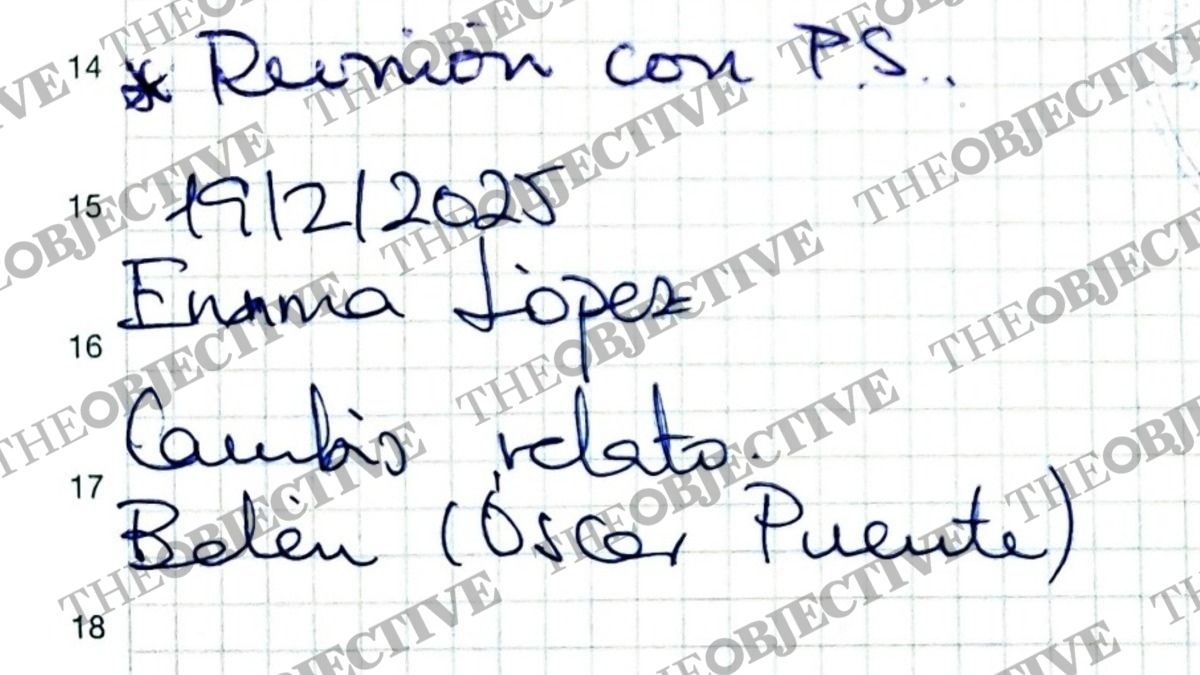 14 * Reunión con P.S..
15 19/2/2025
Emma López
16
Cambio relato.
17
Belén (Óscar Puente)
18
THEOBJECTIVE